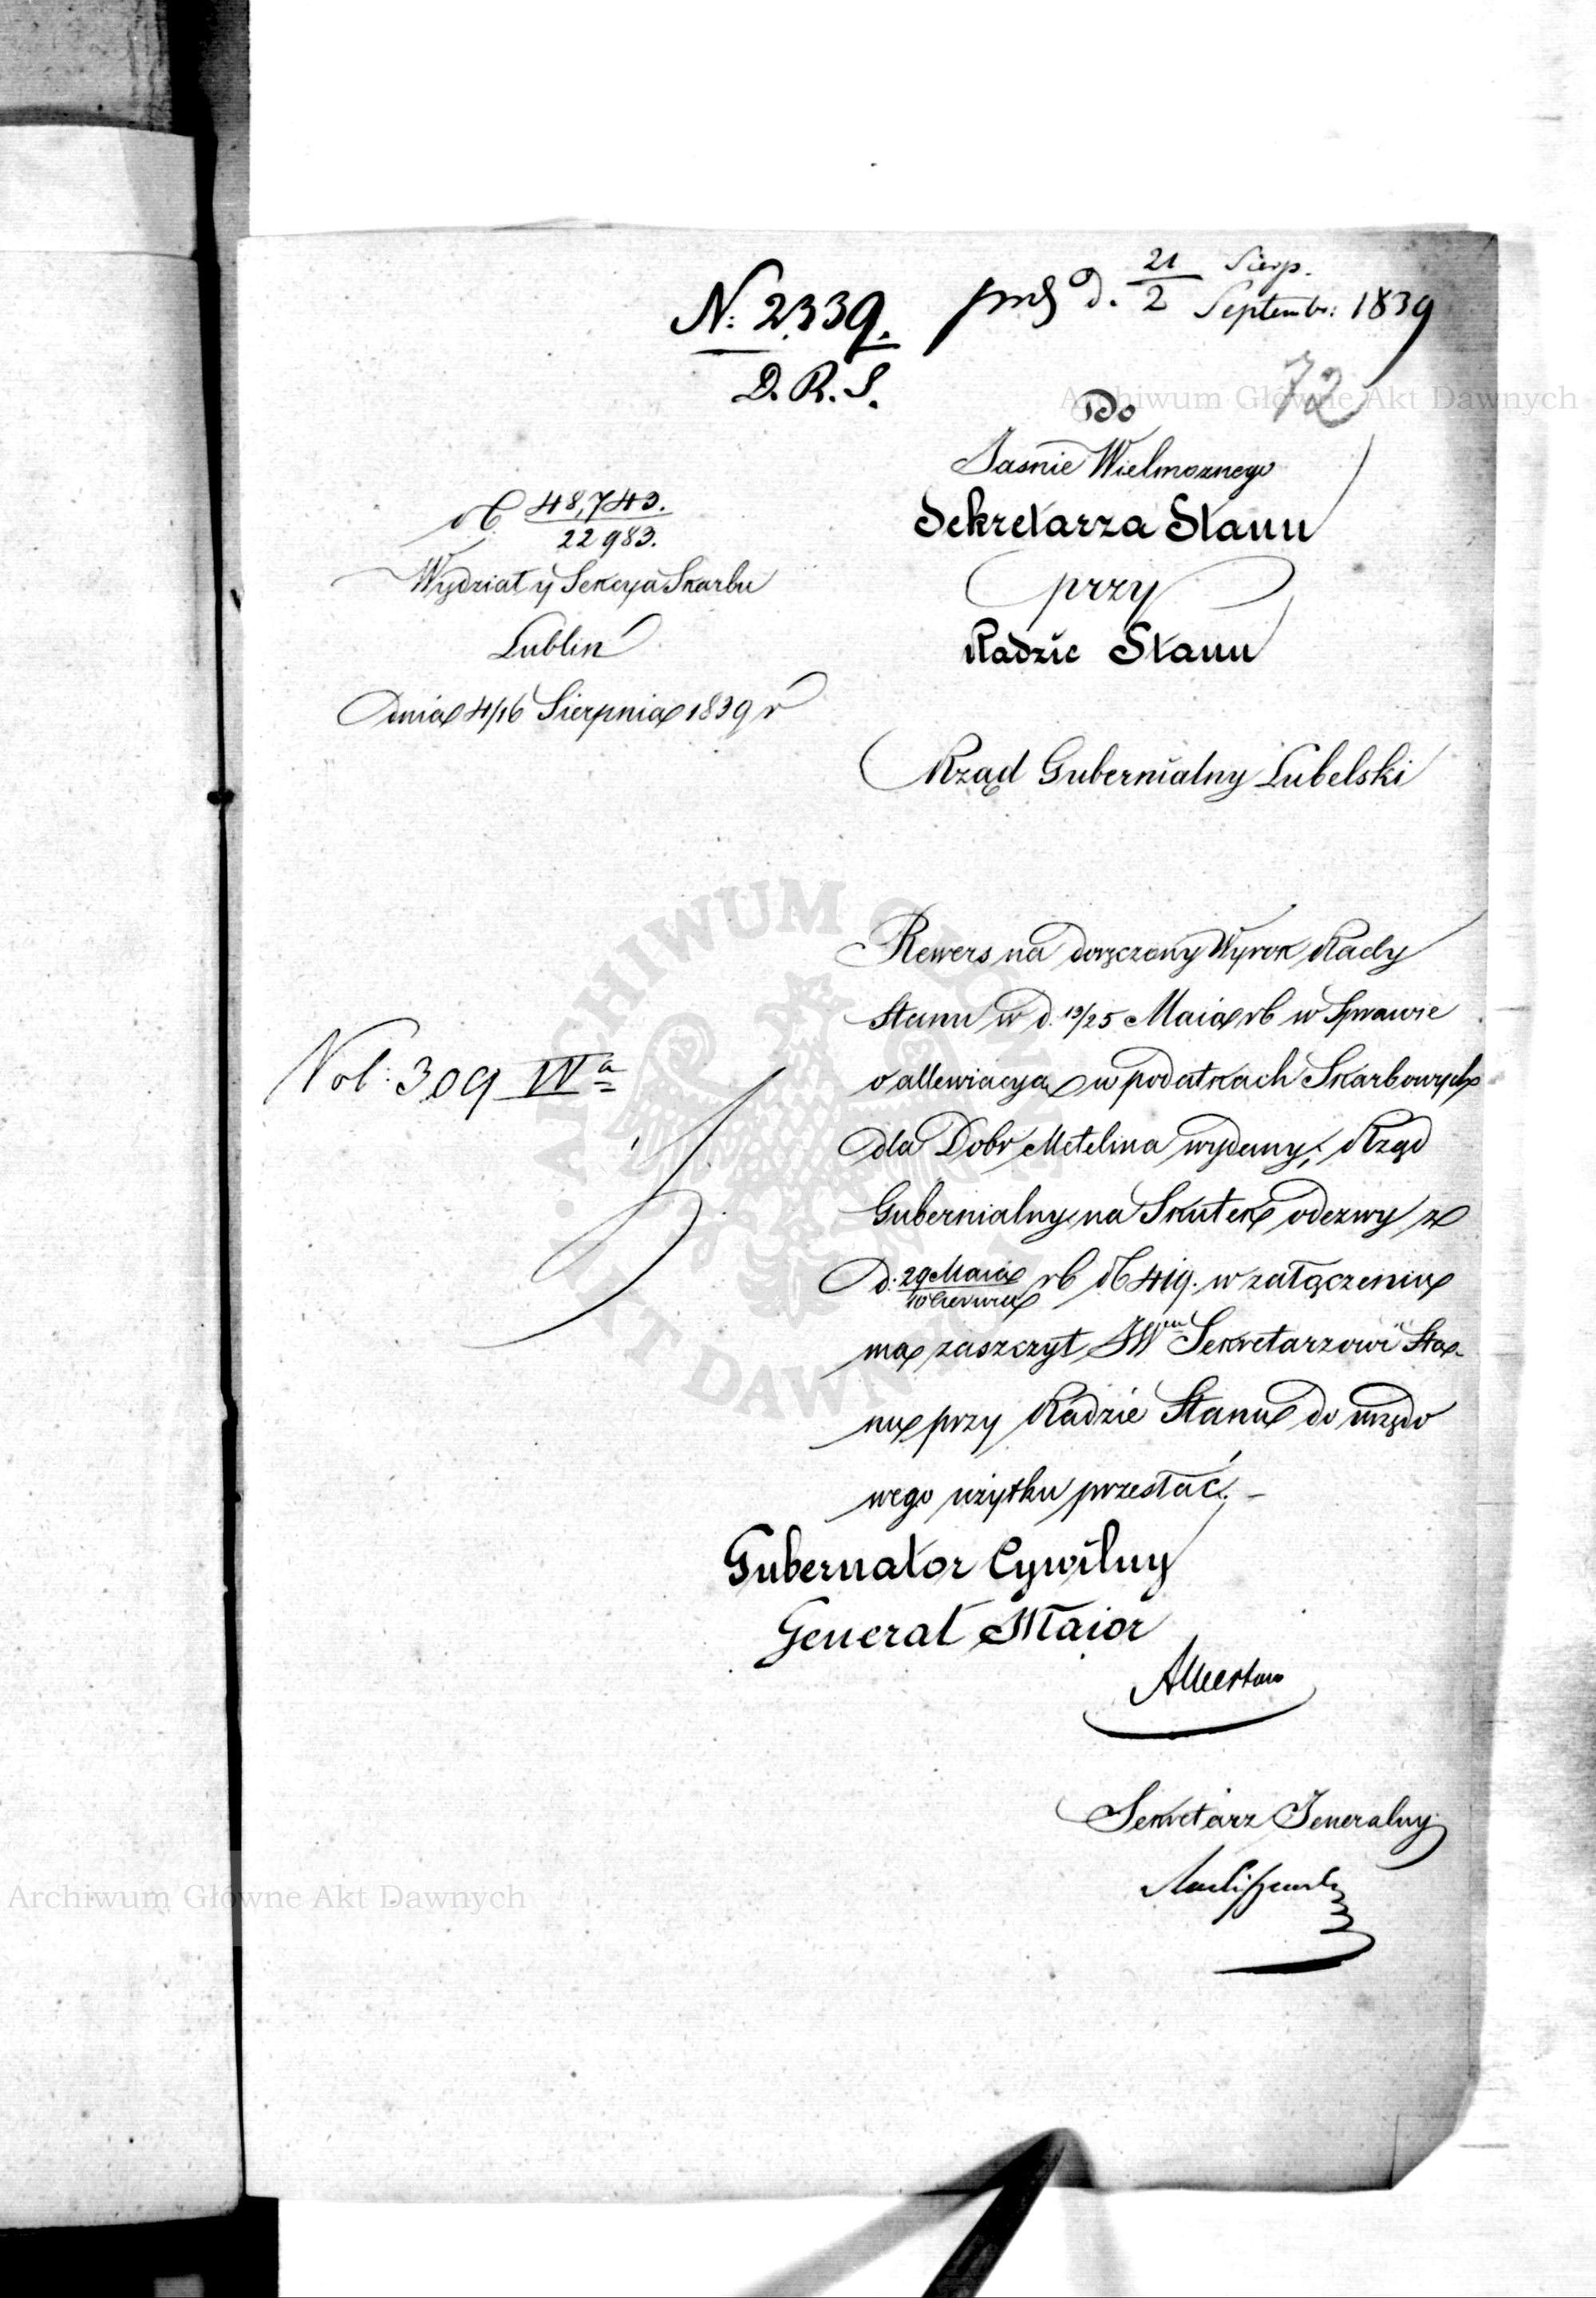 N: 2339.
D. R. S.
d. 21/2 Sierp. Septembr: 1839
72
Do
Jasnie Wielmoznego
Sekretarza Stanu
przy
Radzie Stanu
№ 48,743.
22983.
Wydział y Sekcya Skarbu
Lublin
Dnia 4/16 Sierpnia 1839 r
Rząd Gubernialny Lubelski
Rewers na doręczony Wyrok Rady
Stanu w d. 13/25 Maia rb w Sprawie
o allewiacya w podatkach Skarbowych
dla Dobr Metelina wydany, Rząd
Gubernialny na Skutek odezwy z
d: 29 Maia/10 Czerwca rb № 419. w załączeniu
ma zaszczyt JWmu Sekretarzowi Sta-
nu przy Radzie Stanu do urzędo
wego użytku przesłać. -
Vol: 309 IVa
Gubernator Cywilny
Generał Maior
Sekretarz Jeneralny
Archiwum Główne Akt Dawnych
Archiwum Główne Akt Dawnych
ARCHIWUM GŁÓWNE AKT DAWNYCH